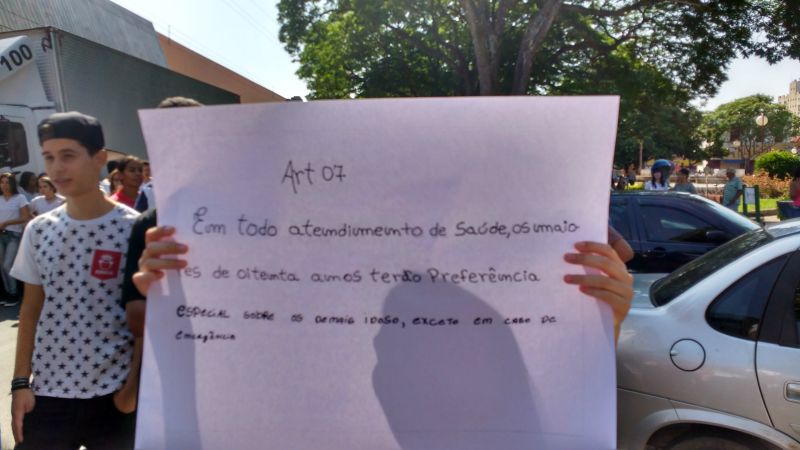 100
Art 07
Em todo atendimento de Saúde, os maio
es de oitenta anos terão Preferência
especial sobre os demais idoso, exceto em caso de
emergência